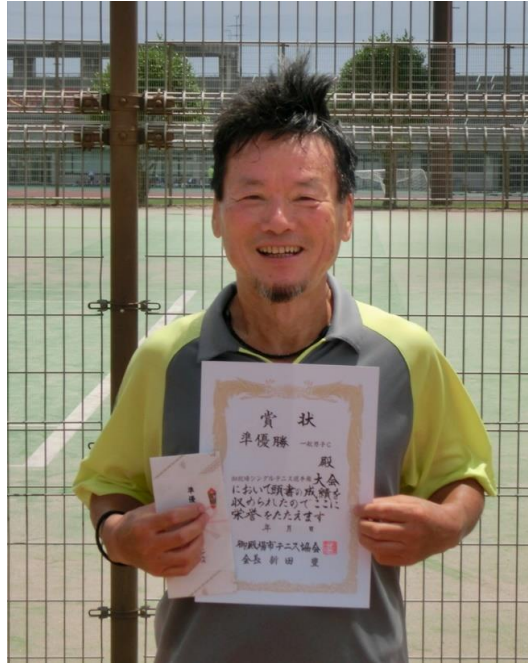 賞状
準優勝
一般男子C
殿
シングルテニス選手権大会
において頭書の成績を
収められたのでここに
栄誉をたたえます
年 月 日
御殿場市テニス協会
会長
準優